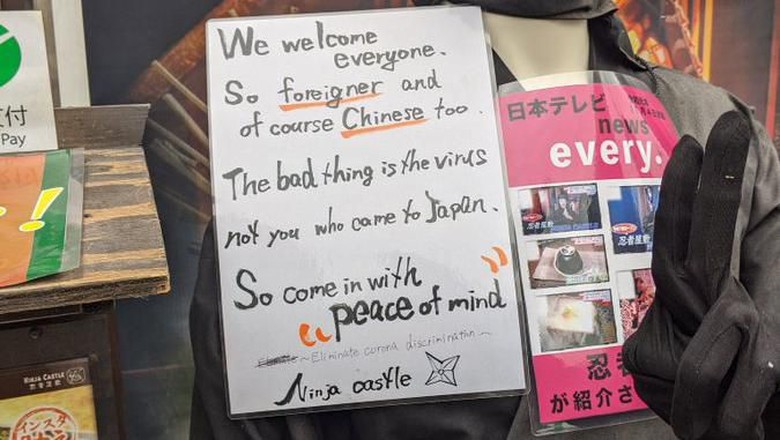 We welcome
everyone.
So foreigner and
of course Chinese too.
The bad thing is the virus
not you who came to Japan.
So come in with
"peace of mind"
~Eliminate corona discrimination~
Ninja castle
日本テレビ
news
every.
忍者屋敷
NINJA CASTLE
忍者屋敷
忍
が紹介さ
付
Pay
!
NINJA CASTLE
インスタ